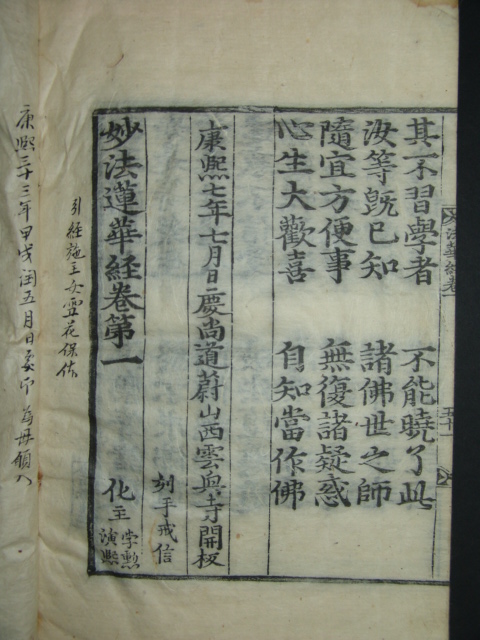 法華經卷一
五十一
其不習學者 不能曉了此
汝等旣已知 諸佛世之師
隨宜方便事 無復諸疑惑
心生大歡喜 自知當作佛
康熙七年七月日慶尚道蔚山西雲興寺開板
刻手戒信
妙法蓮華經卷第一 化主
演熙
引經施主女雪花保体
康熙三十三年甲戌閏五月日